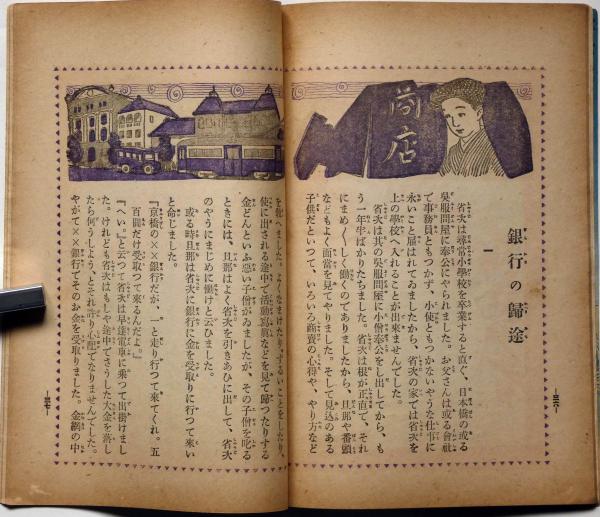 商店
銀行の歸途
一
省次は尋常小學校を卒業すると直ぐ、日本橋の或る
吳服問屋に奉公にやられました。お父さんは或る會社
で事務員ともつかず、小使ともつかないやうな仕事に
永いこと雇はれてゐましたから、省次の家では省次を
上の學校へ入れることが出來ませんでした。
省次は其の吳服問屋に小僧奉公をし出してから、も
う一年半ばかりたちました。省次は根が正直で、それ
にまめ〳〵しく働くのでありましたから、旦那や番頭
などもよく面倒を見てやりました。そして見込のある
子供だといつて、いろいろ商賣の心得や、やり方など
―三六―
を敎へました。よくなまけたり、ずるいことをしたり、
使に出される途中で活動寫眞などを見て歸つたりする
金どんといふ惡い子僧がゐましたが、その子僧を叱る
ときには、旦那はよく省次を引きあひに出して、省次
のやうにまじめに働けと云ひました。
或る時旦那は省次に銀行に金を受取りに行つて來い
と命じました。
『京橋の××銀行だが、一と走り行つて來てくれ。五
百圓だけ受取つて來るんだよ。』
『へい。』と云つて省次は早速電車に乘つて出掛けまし
た。けれども省次はもしや途中でさうした大金を落し
たら何うしよう、とそれ許り心配でなりませんでした。
やがて××銀行でそのお金を受取りました。金網の中
―三七―